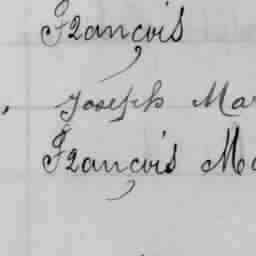 François
Joseph Ma
François Ma